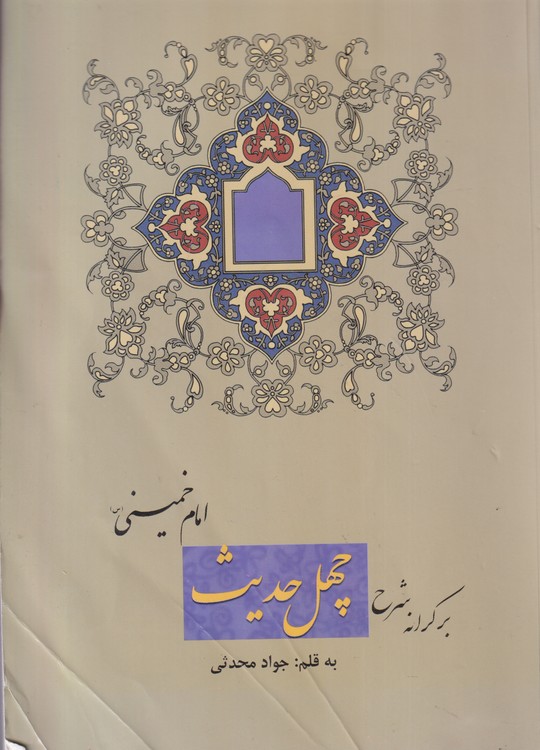 بر کرانه شرح
چهل حدیث
امام خمینی (س)
به قلم: جواد محدثی